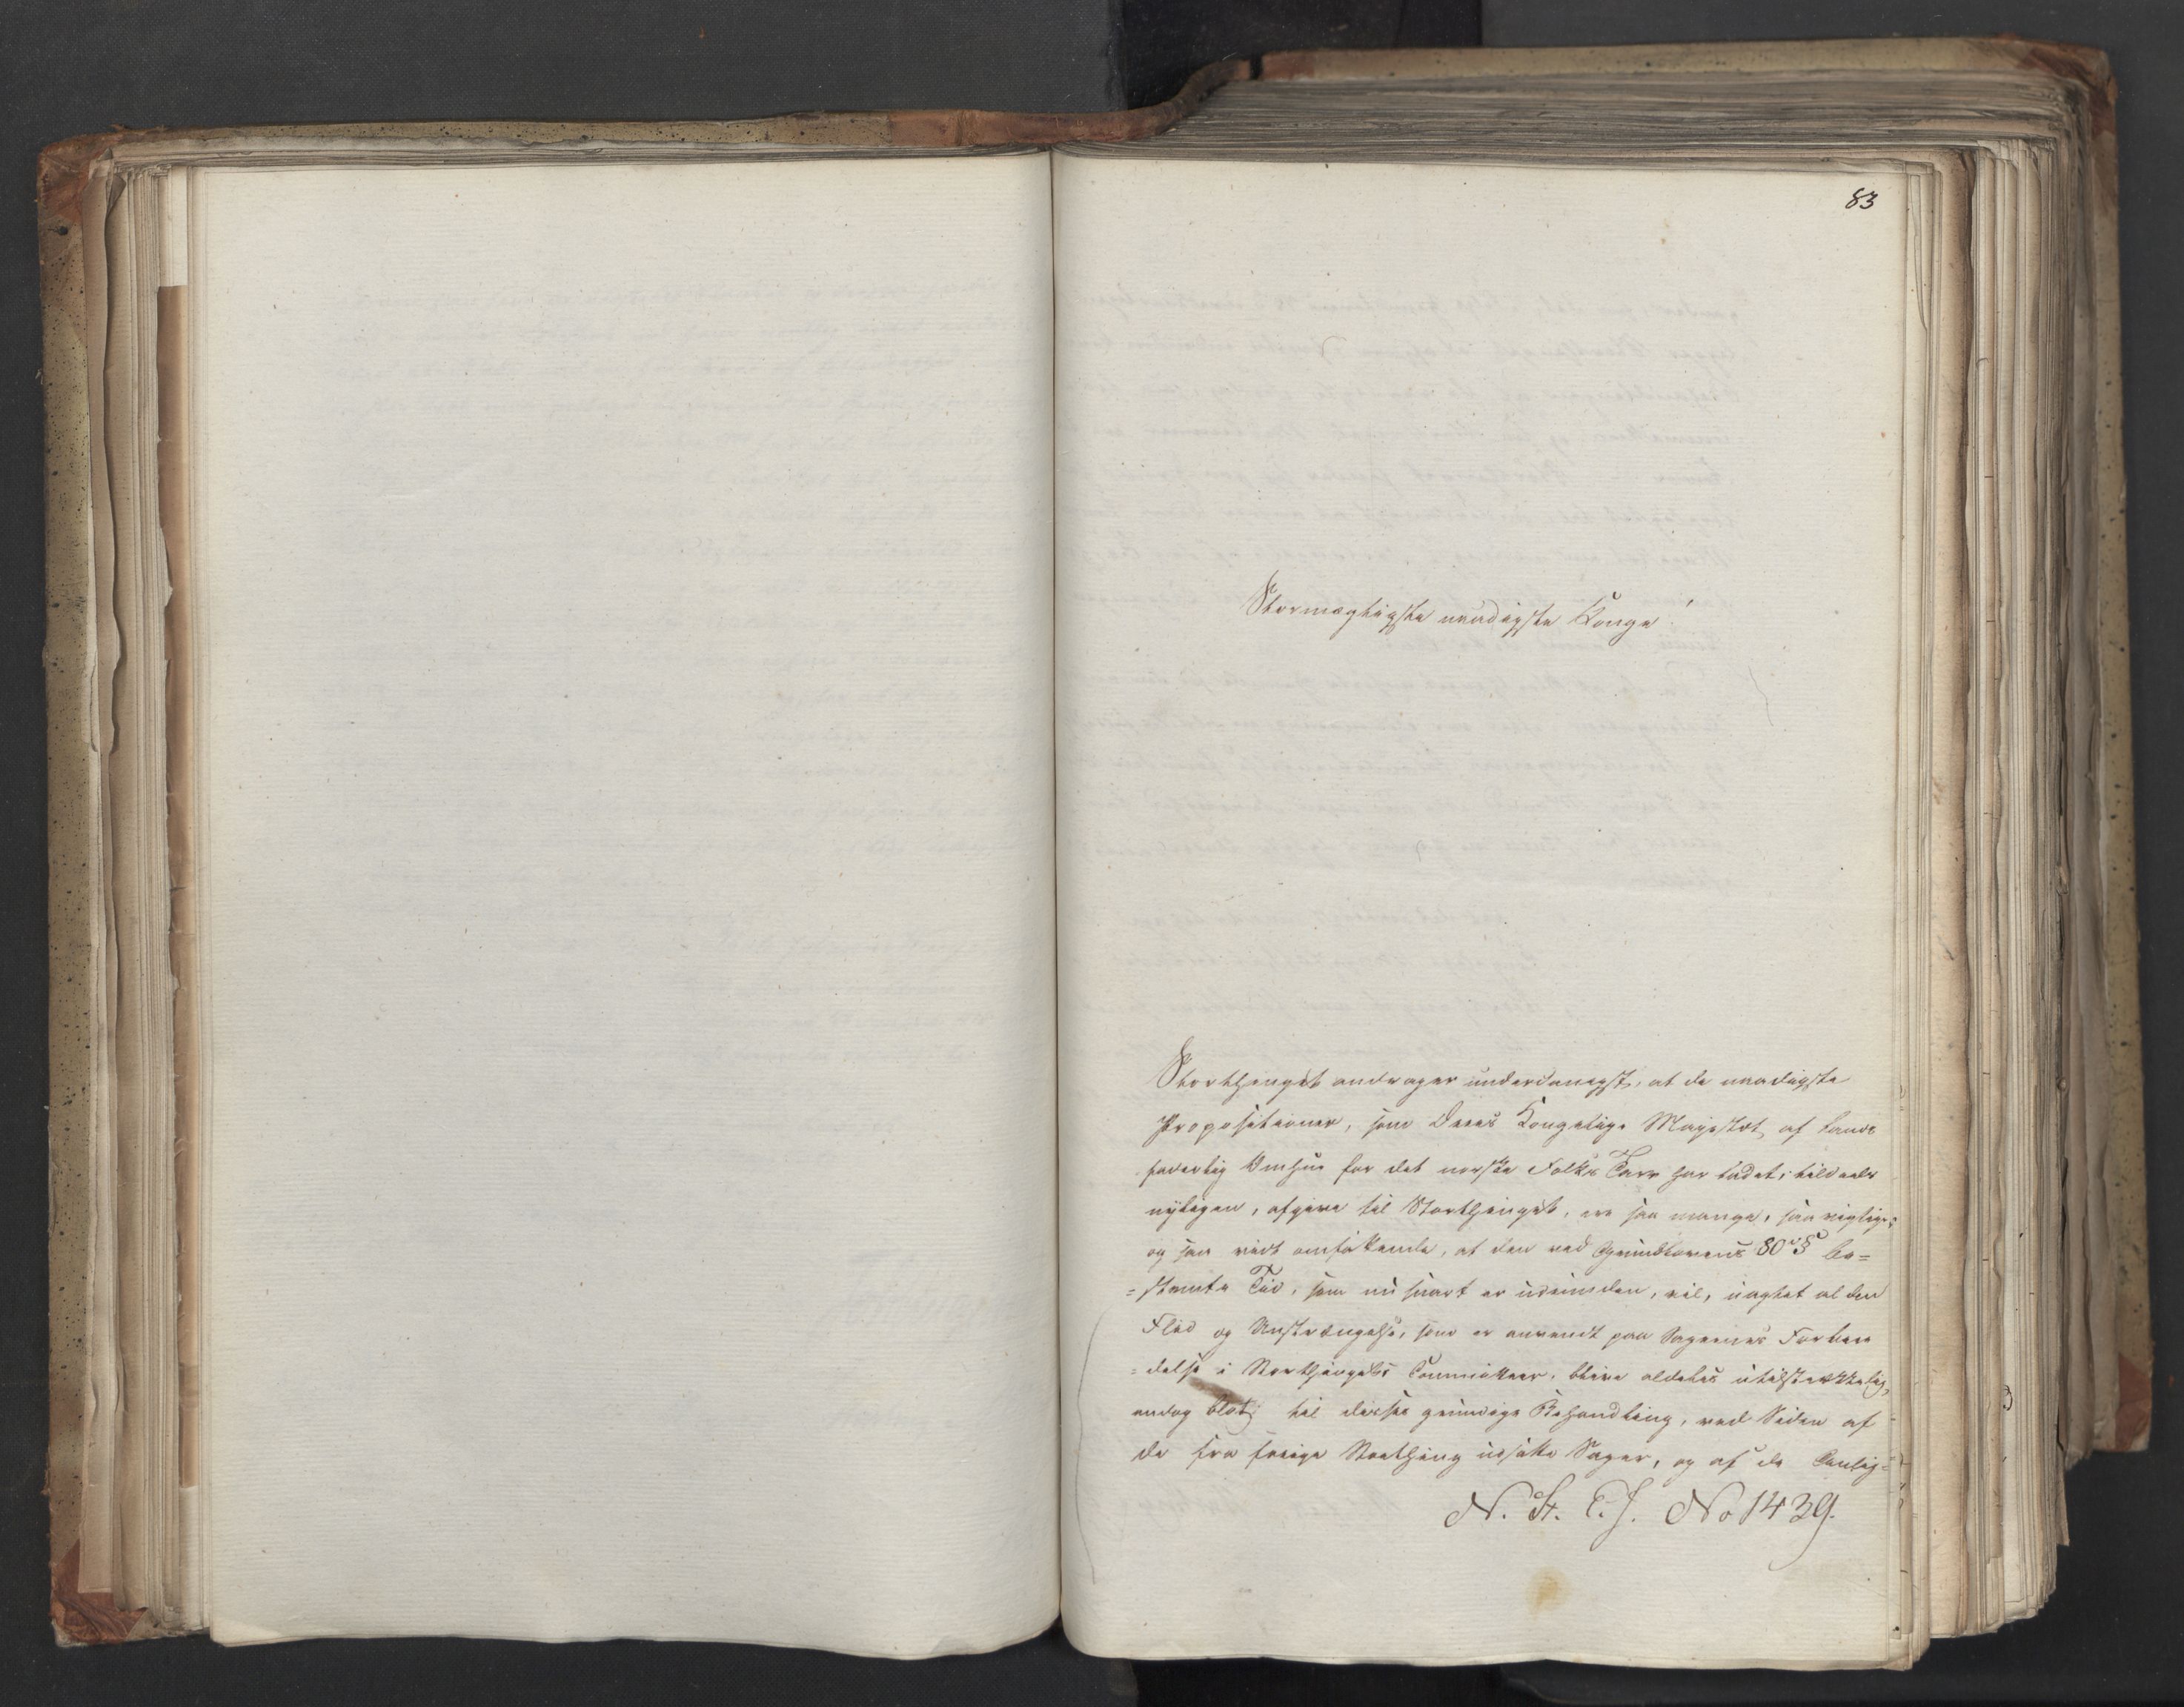 83
Stormægtigste naadigste Konge!
Storthinget andrager underdanigst, at de naadigste
Propositioner, som Deres Kongelige Majestæt, af lands
faderlig Omhue for det norske Folks Tarv har ladet, tildeels
nyligen, afgive til Storthinget, ere saa mange, saa vigtige,
og saa vidt omfattende, at den ved Grundlovens 80de § be=
=stemte Tid, som nu snart er udrunden, vil, uagtet al den
Flid og Anstrængelse, som er anvendt paa Sagernes Forbere
=delse i Storthingets Committeer, blive aldeles utilstrækkelig,
endog blot til disses grundige Behandling, ved Siden af
de fra forrige Storthing udsatte Sager, og af de Anlig=
N. St. E. J. No 1439.